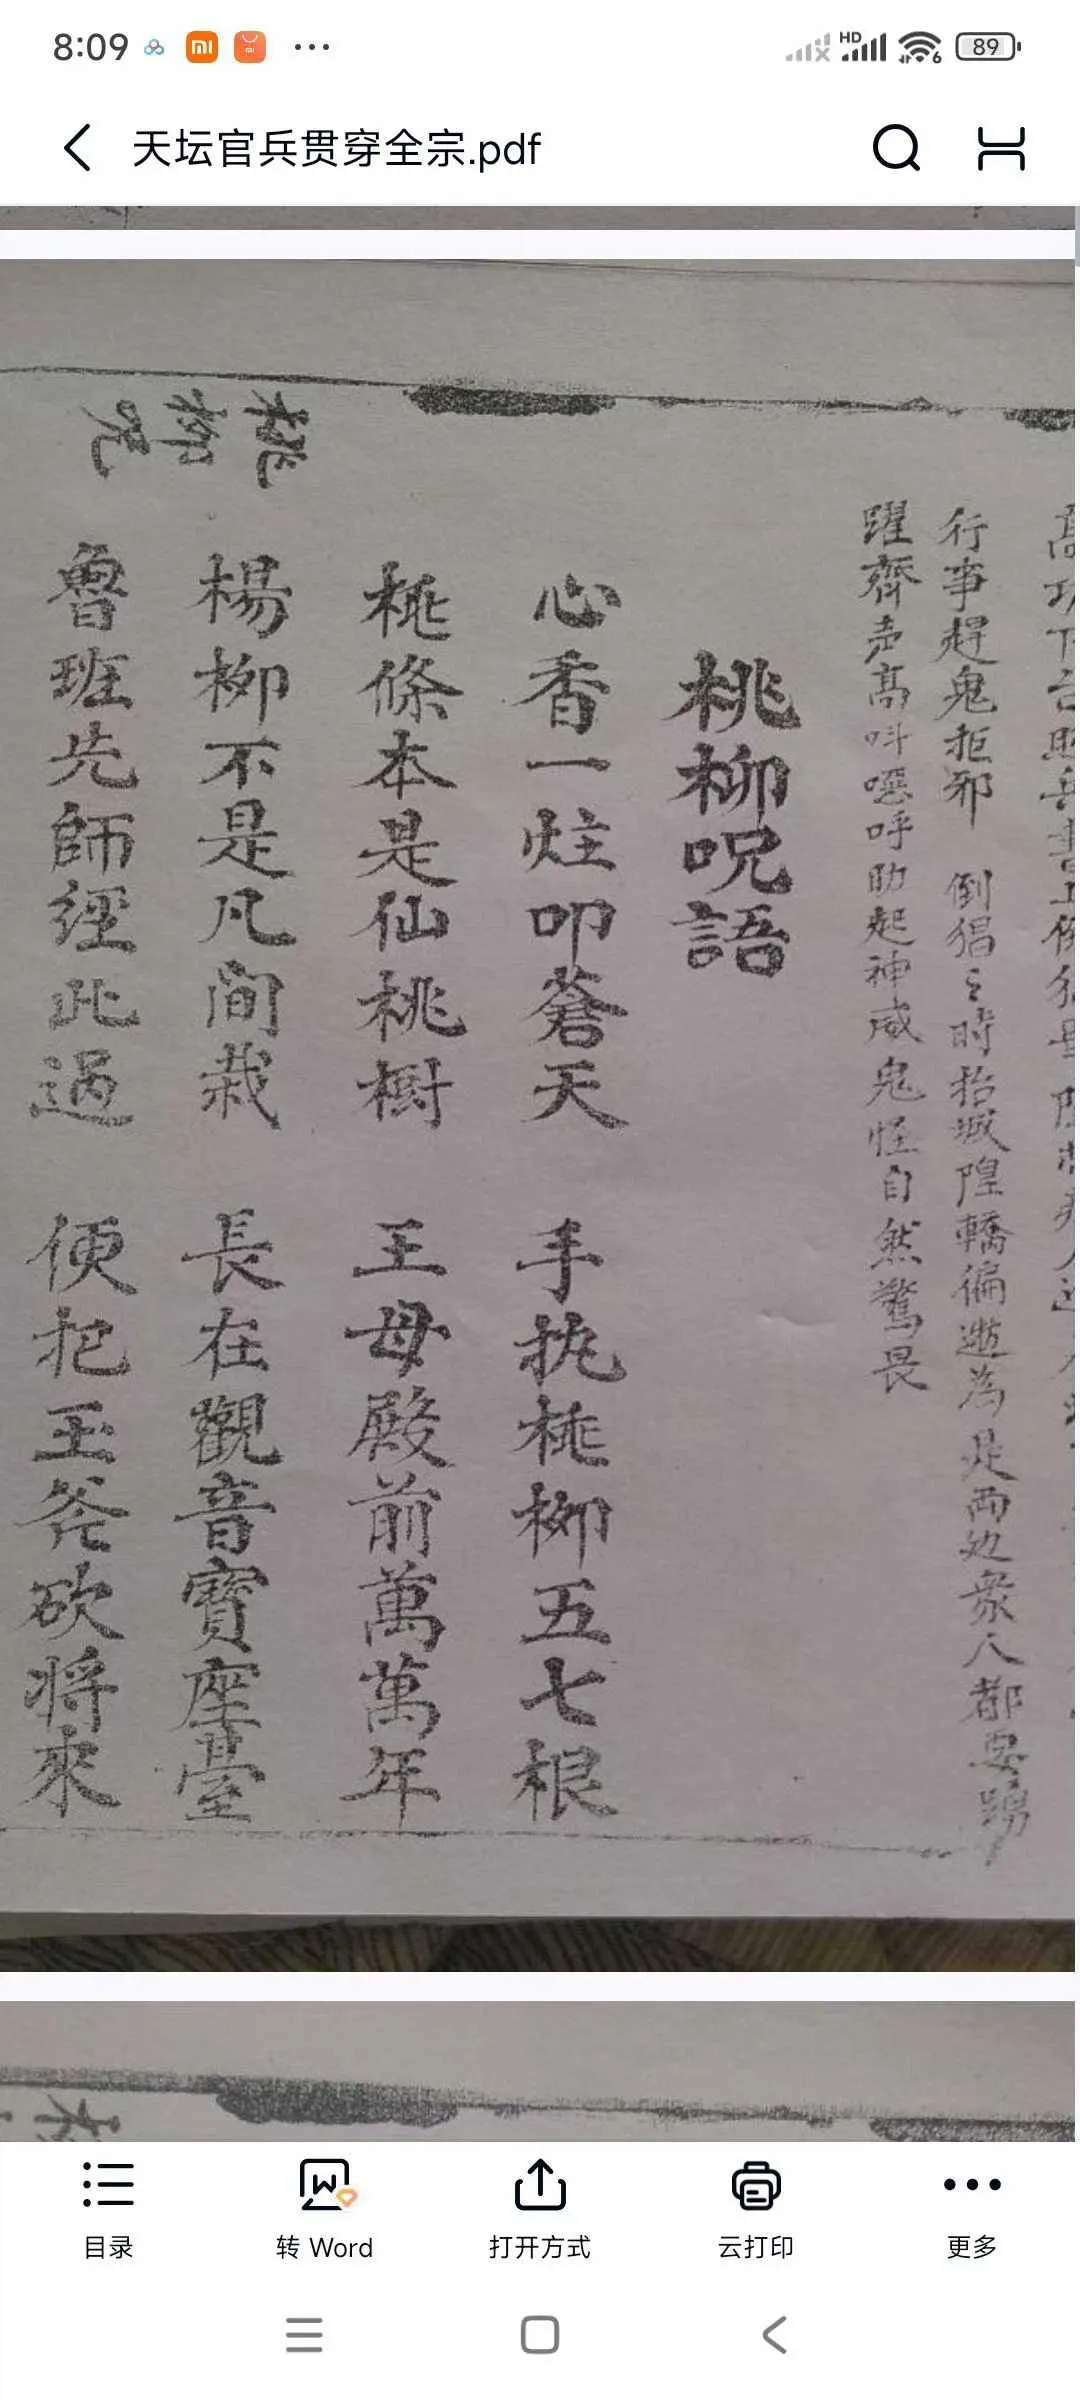 8:09
HD
6
89
天坛官兵贯穿全宗.pdf
行事趕鬼拒邪 倒猖之時抬城隍轎偏遊為是兩边衆人都要踴
躍齊声高呌噁呼助起神威鬼怪自然驚畏
桃柳呪語
心香一炷叩蒼天 手执桃柳五七根
桃條本是仙桃樹 王母殿前萬萬年
楊柳不是凡間栽 長在觀音寶座臺
魯班先師經此過 便把玉斧砍將來
桃柳咒
目录
转 Word
打开方式
云打印
更多